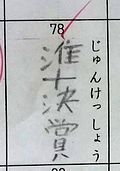 78
じゅんけっしょう
準決賞